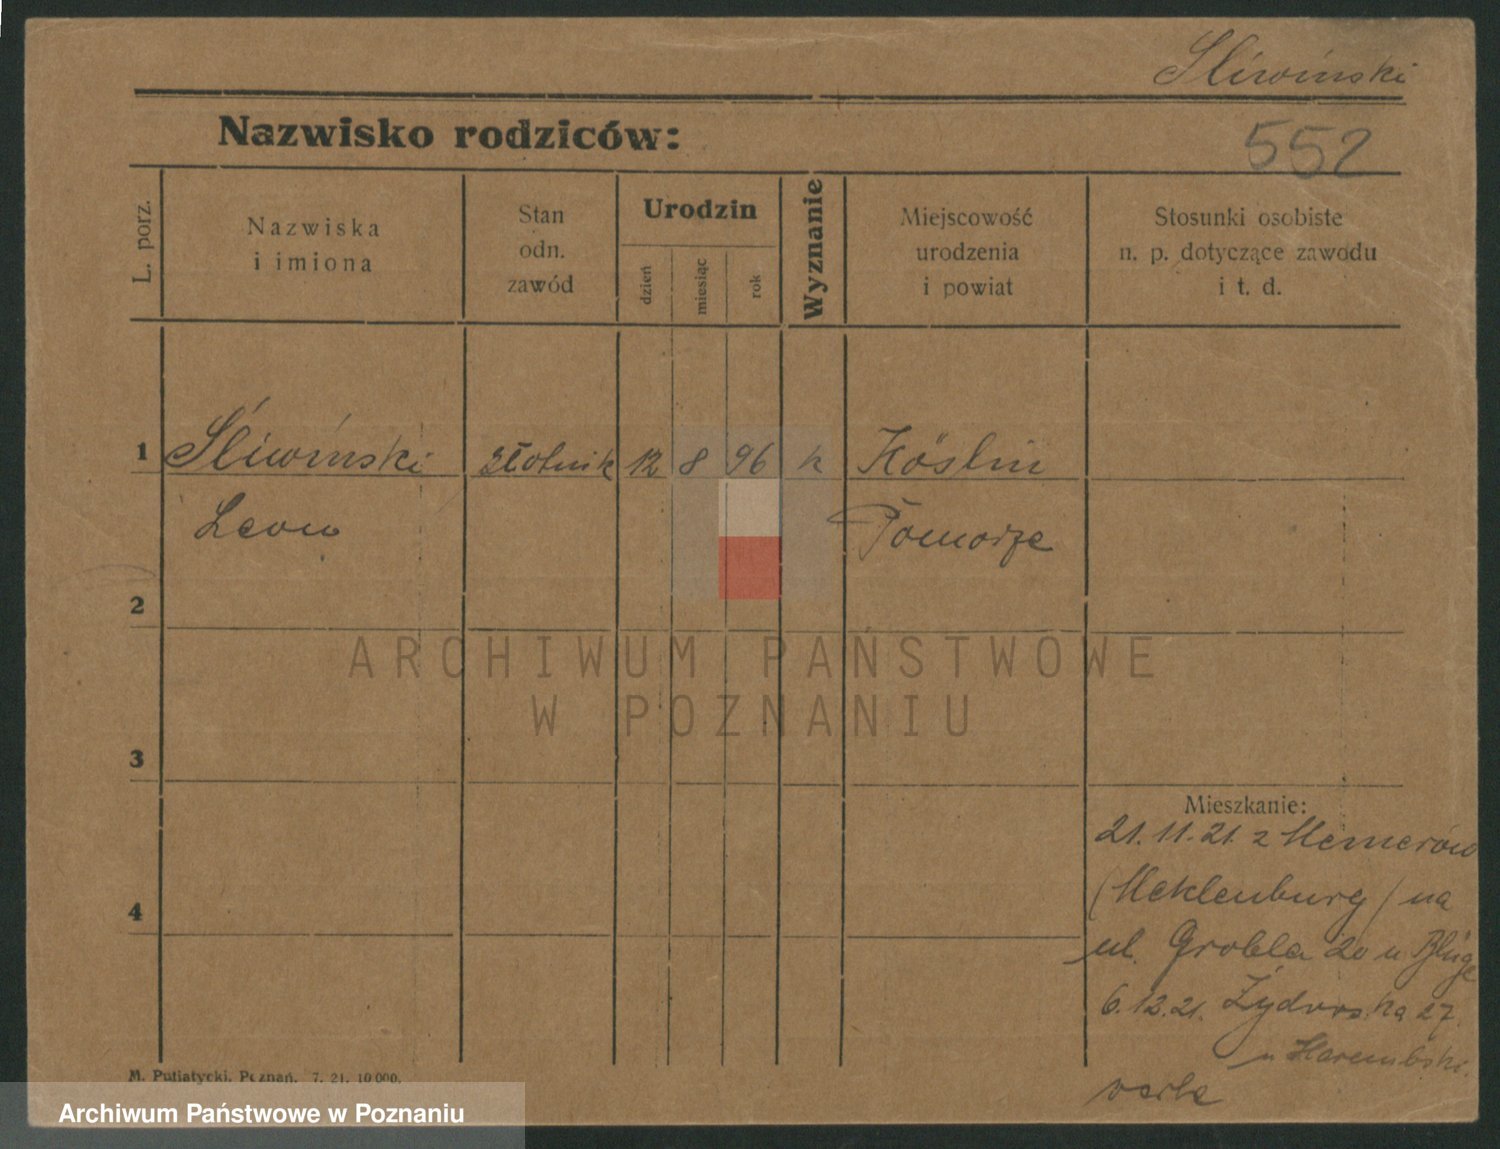 Śliwiński
Nazwisko rodziców:
552
L. porz.
Nazwiska
i imiona
Stan
odn.
zawód
Urodzin
dzień
miesiąc
rok
Wyznanie
Miejscowość
urodzenia
i powiat
Stosunki osobiste
n. p. dotyczące zawodu
i t. d.
1 Śliwiński złotnik 12 8 96 k Köslin
Leon Pomorze
2
ARCHIWUM PAŃSTWOWE
W POZNANIU
3
Mieszkanie:
21.11.21. z
4 (Meklenburg) na
ul. Grobla 20 u
6.12.21. Żydowska 27.
u
M. Putiatycki, Poznań. 7. 21. 10 000.
Archiwum Państwowe w Poznaniu